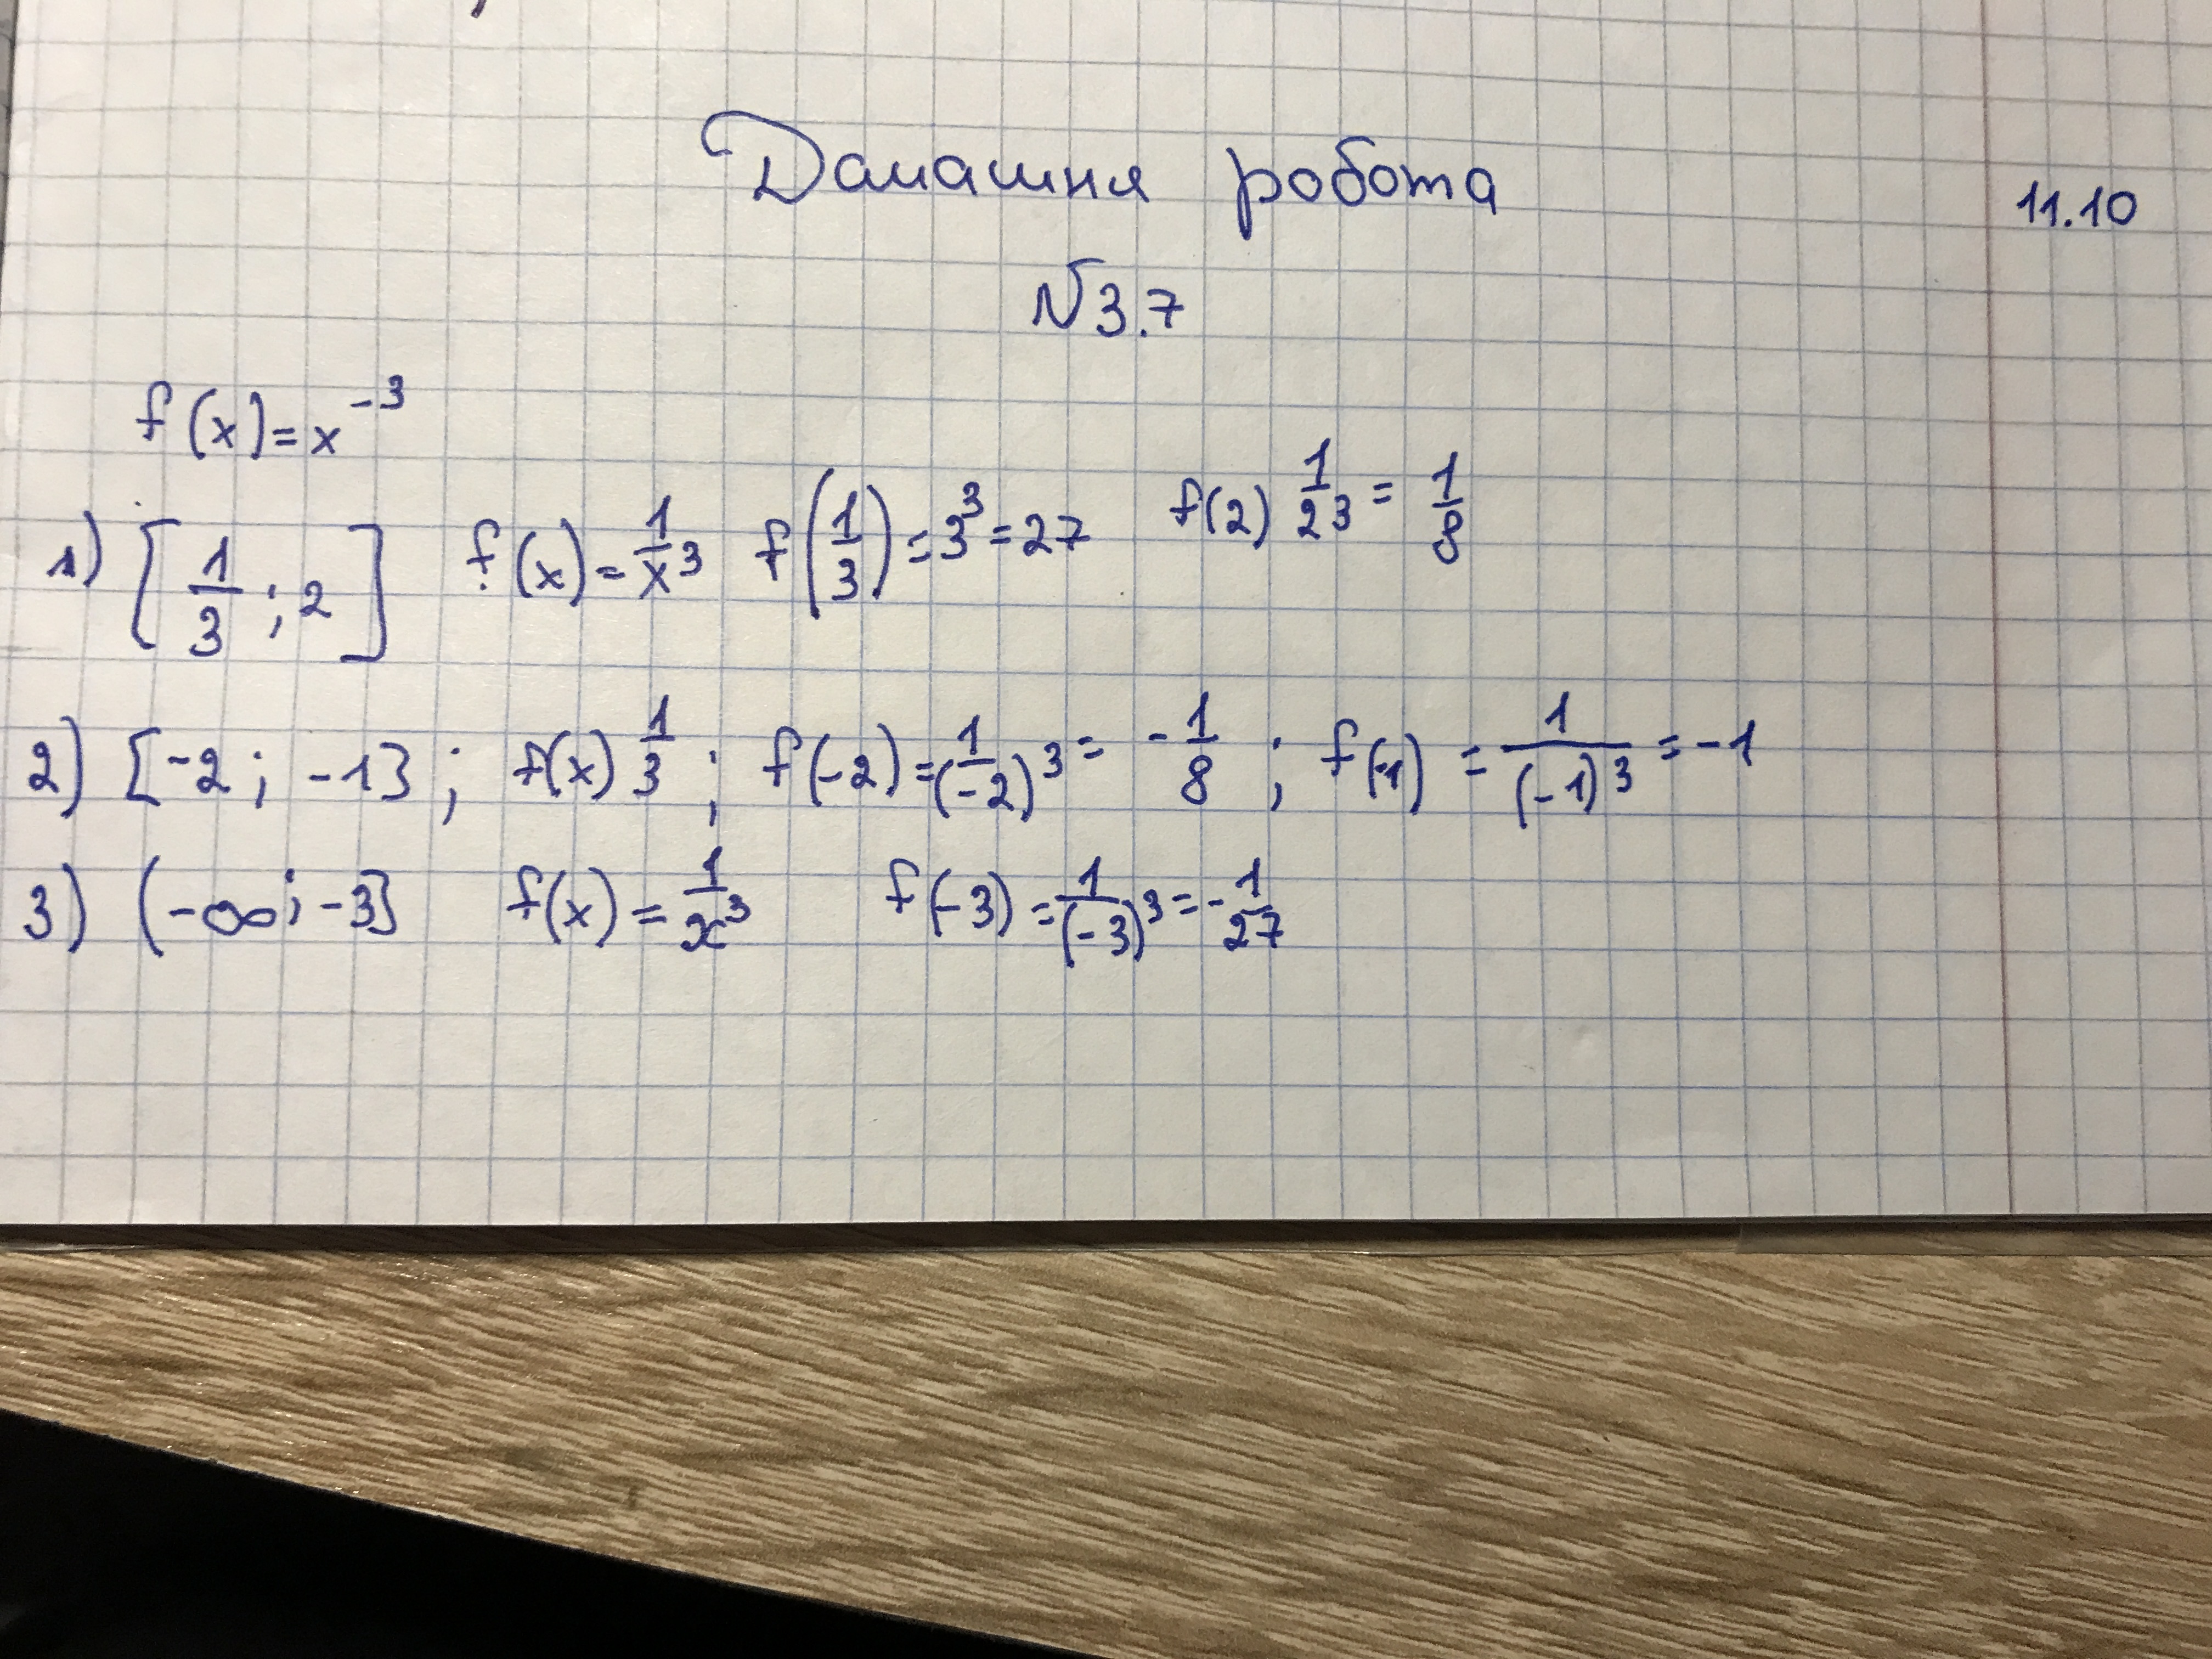 Домашня робота 11.10
N3.7
f(x)=x⁻³
1) [1/3 ; 2] f(x)=1/x³ f(1/3)=3³=27 f(2) 1/2³ = 1/8
2) [-2 ; -1] ; f(x) 1/3 ; f(-2)=1/(-2)³ = -1/8 ; f(-1) = 1/(-1)³ = -1
3) (-∞; -3] f(x) = 1/x³ f(-3) = 1/(-3)³ = -1/27